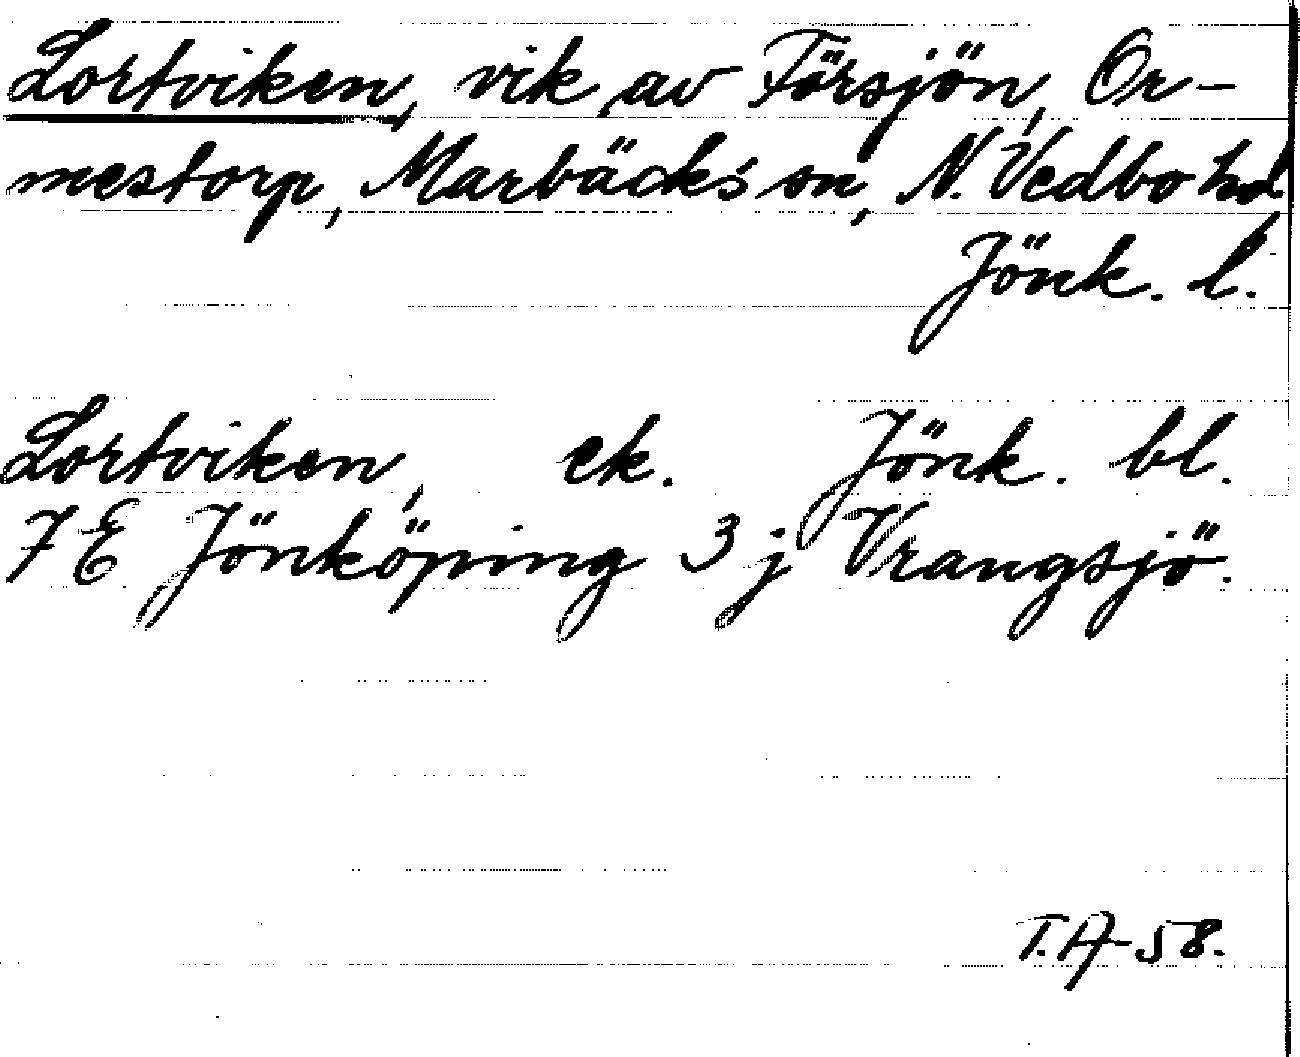 Lortviken, vik av Försjön, Or-
mestorp, Marbäcks sn, N. Vedbo hd,
Jönk. l.
Lortviken, ek. Jönk. bl.
7 E Jönköping 3 j Vrangsjö.
T.A-58.